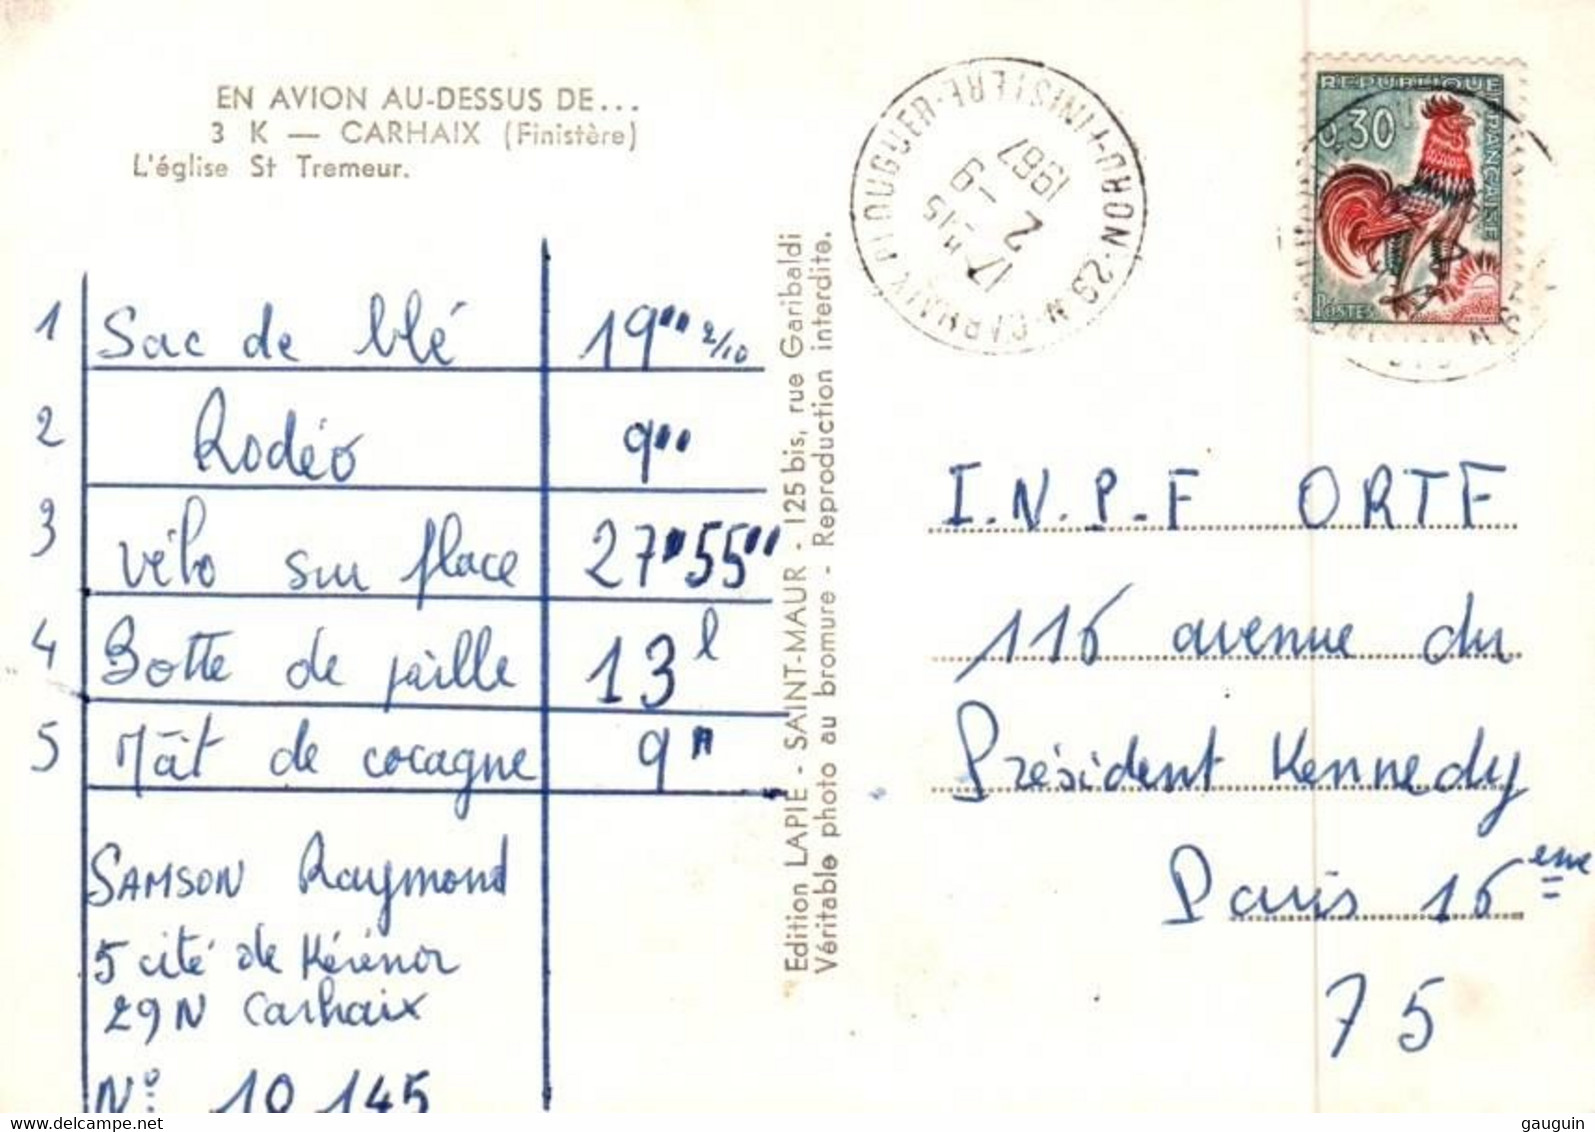 EN AVION AU-DESSUS DE...
3 K — CARHAIX (Finistère)
L'église St Tremeur.
1 Sac de blé 19"" 2/10
2 Rodéo 9""
3 vélo sur place 27"55""
4 Botte de paille 13 l
5 Mât de cocagne 9"
SAMSON Raymond
5 cité de Kérénor
29N Carhaix
N°: 10 145
Edition LAPIE - SAINT-MAUR - 125 bis, rue Garibaldi
Véritable photo au bromure - Reproduction interdite.
CARHAIX PLOUGUER-FINISTERE
17 H 15
2 -9
1967
REPUBLIQUE FRANÇAISE
0,30
POSTES
I.N.P.F ORTF
116 avenue du
Président Kennedy
Paris 16eme
75
delcampe.net
gauguin